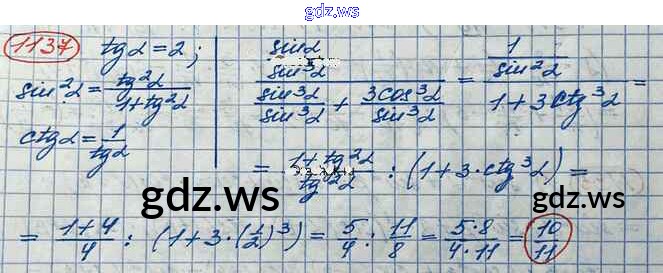 gdz.ws
1137 tgα = 2;
sin²α = tg²α / (1+tg²α)
ctgα = 1/tgα
(sinα/sin³α) / (sin³α/sin³α + 3cos³α/sin³α) = (1/sin²α) / (1+3ctg³α) =
= (1+tg²α)/tg²α : (1+3·ctg³α) =
gdz.ws
= (1+4)/4 : (1+3·(1/2)³) = 5/4 : 11/8 = 5·8/4·11 = 10/11
gdz.ws